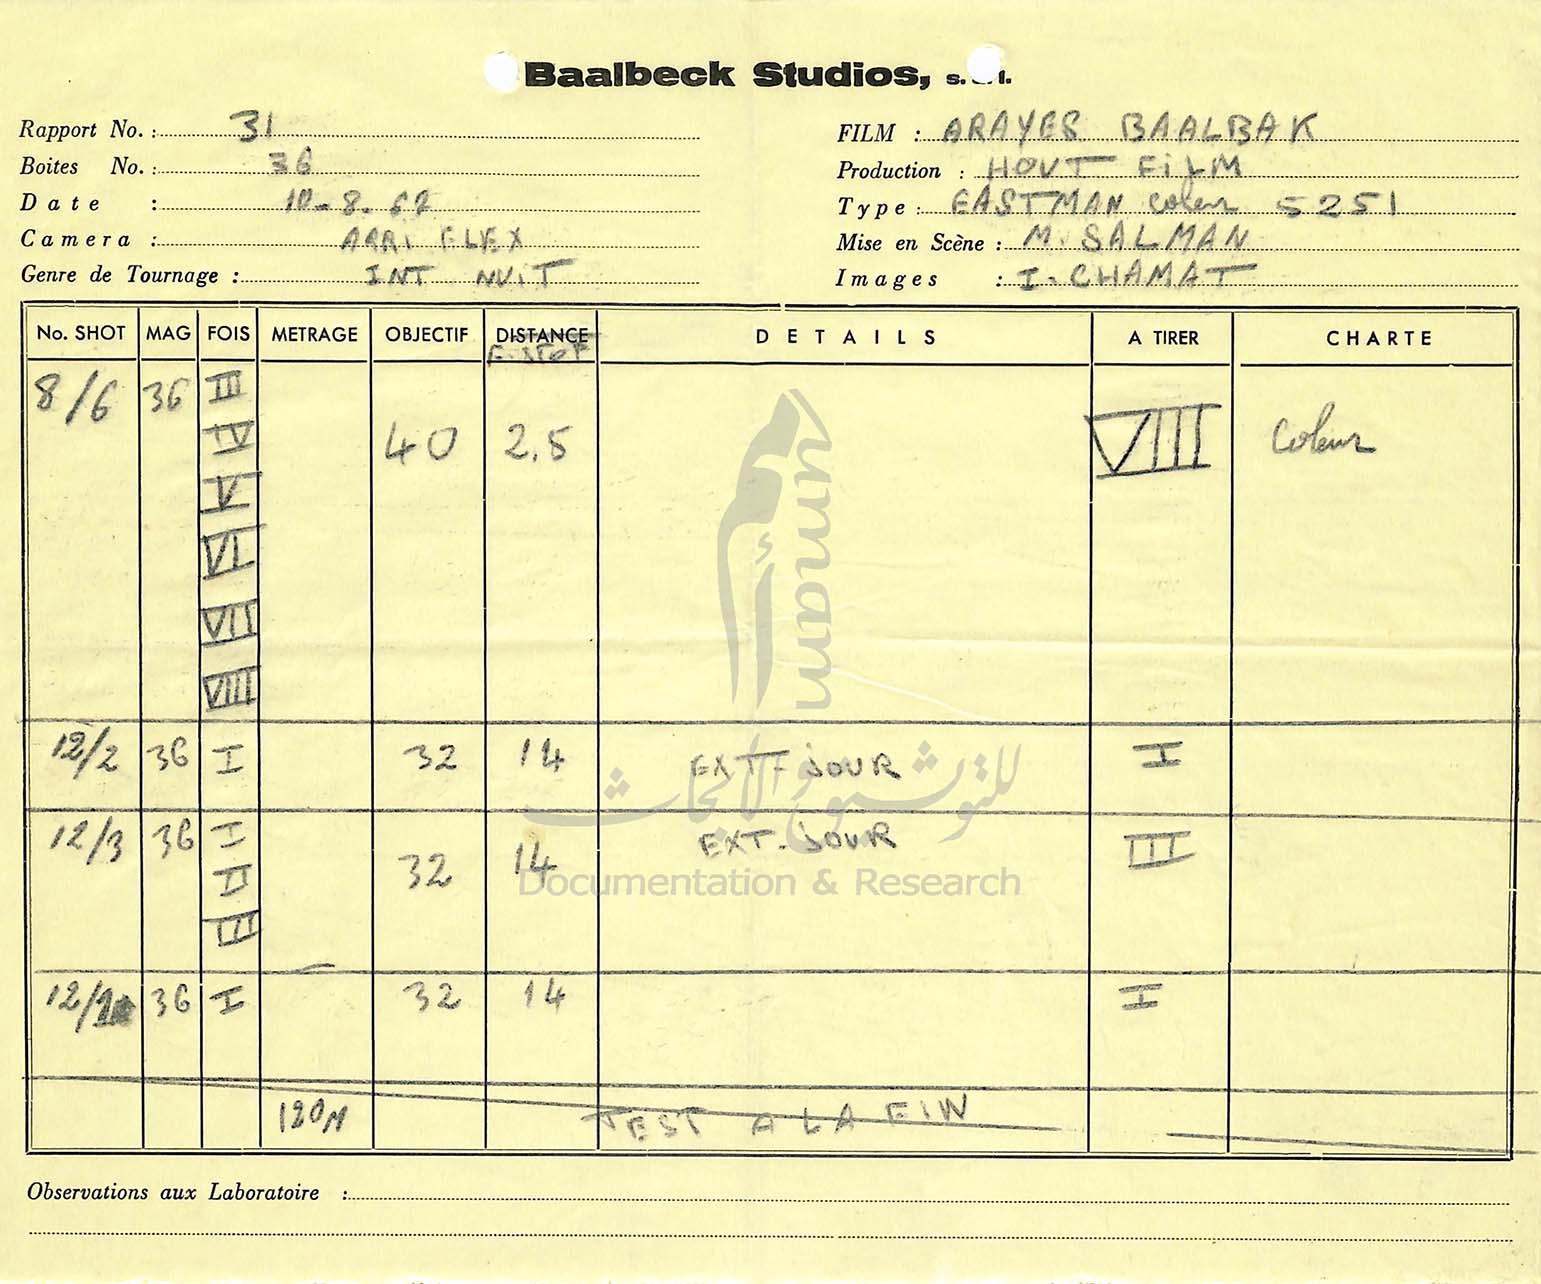 Baalbeck Studios, s. l.
Rapport No. : 31
Boites No. : 36
Date :
Camera : ARRI FLEX
Genre de Tournage : INT NUIT
FILM : ARAYES BAALBAK
Production : HOUT FILM
Type : EASTMAN coleur 5251
Mise en Scène : M. SALMAN
Images : I. CHAMAT
No. SHOT MAG FOIS METRAGE OBJECTIF DISTANCE DETAILS A TIRER CHARTE
F. STOP
8/6 36 III
IV 40 2.5 VIII coleur
V
VI
VII
VIII
12/2 36 I 32 14 EXT - JOUR I
12/3 36 I EXT. JOUR III
II 32 14
III
12/1 36 I 32 14 I
120M TEST A LA FIN
Observations aux Laboratoire :
umam
أمم
للتوثيق والأبحاث
Documentation & Research